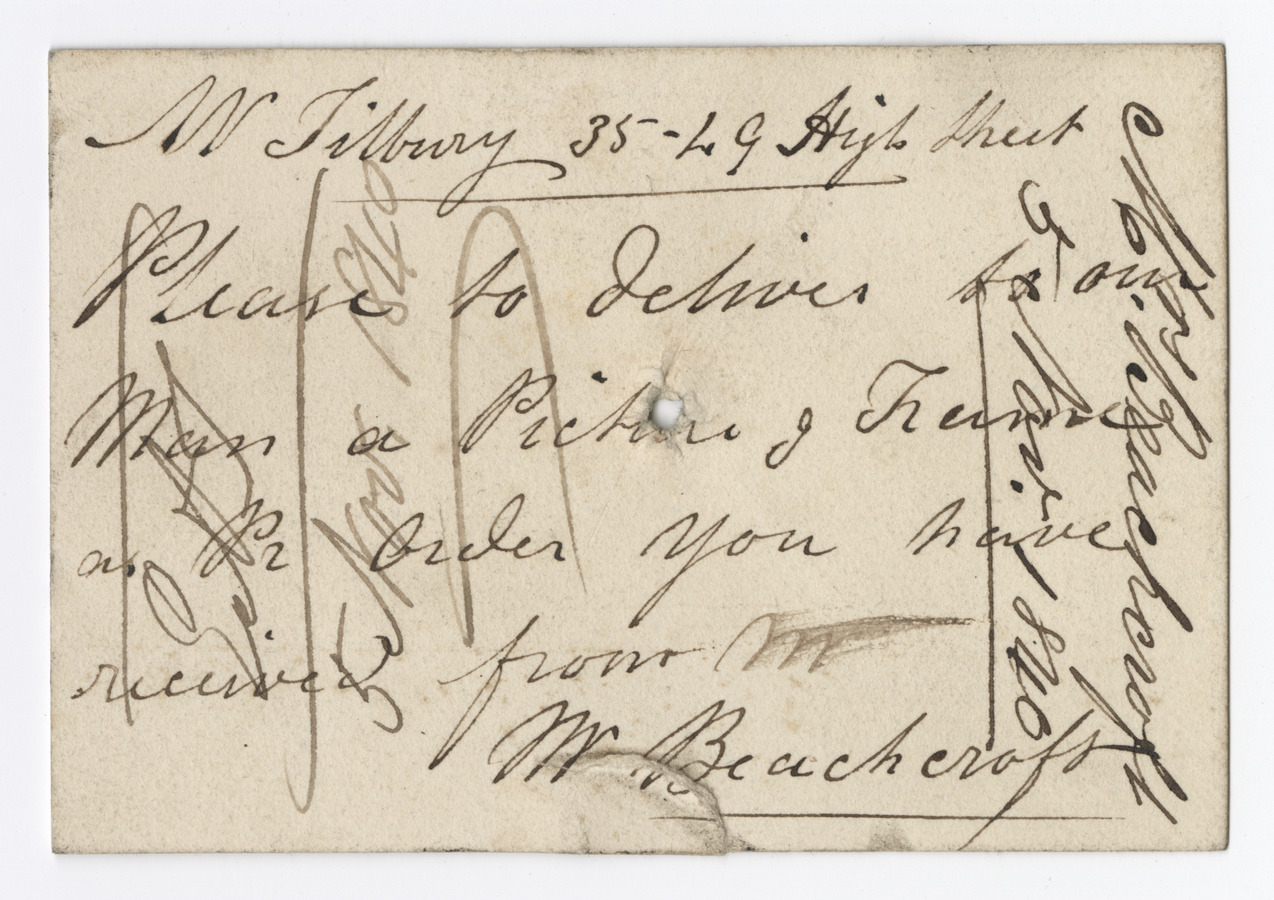 Mr Tilbury 35-49 High Street
Please to deliver to our
Man a Picture & Frame
as Pr Order you have
received from M
Mr Beachcroft
Mr R. Beachcroft
5 Novr 1846
5 Nov 1846